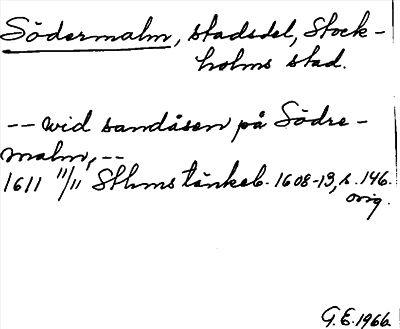 Södermalm, stadsdel, Stock-
holms stad.
-- wid sandåsen på Södre-
malm, --
1611 11/11 Sthms tänkeb. 1608-13, s. 146.
orig.
G.E. 1966.